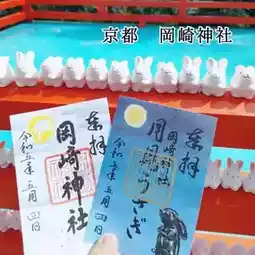 京都 岡崎神社
奉拝
岡崎神社
令和五年五月四日
奉拝
岡崎神社
月うさぎ
令和五年五月四日